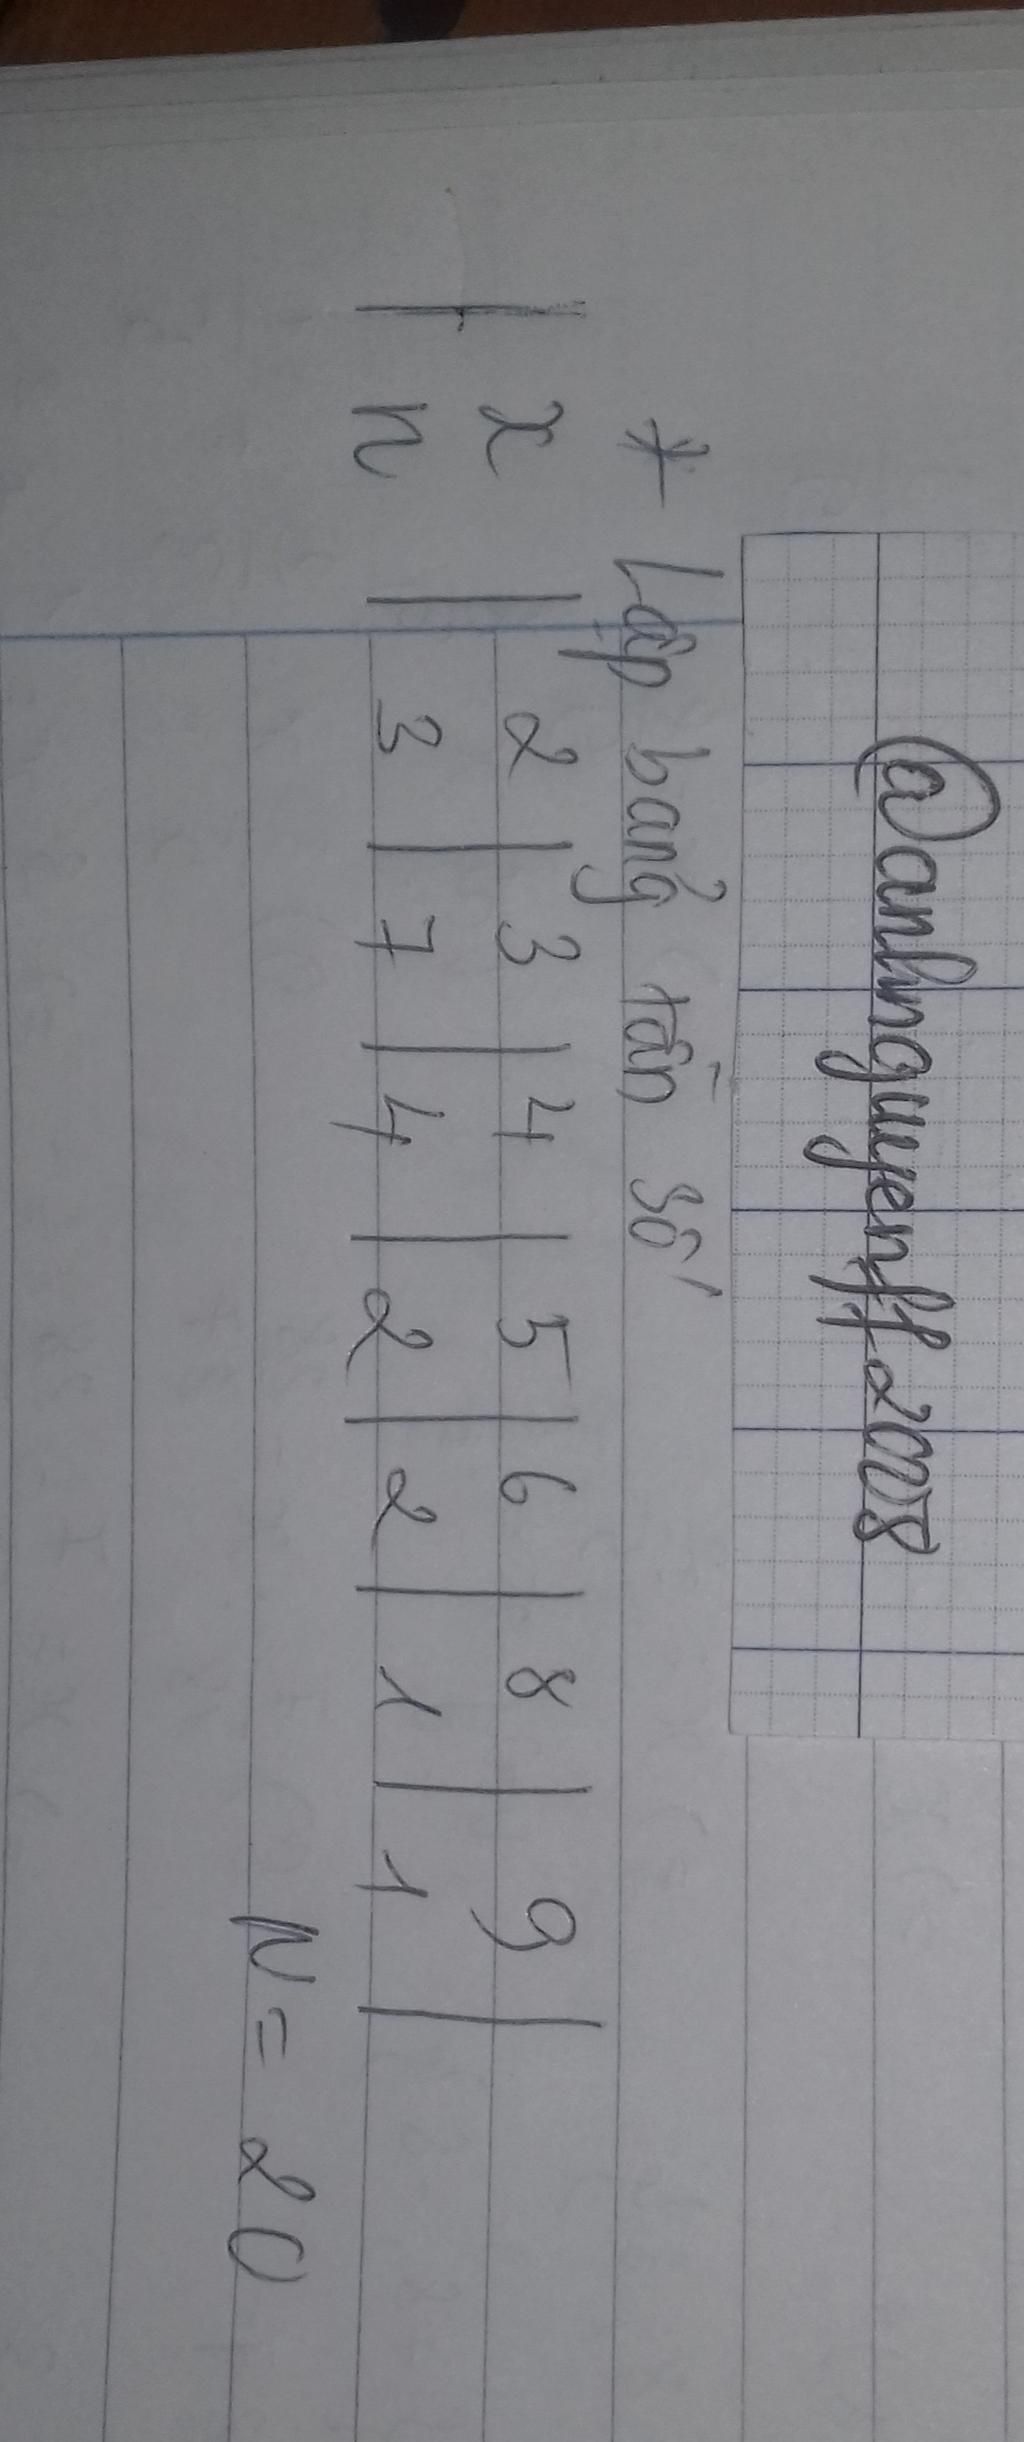 @anhnguyenff2008
* Lập bảng tần số
x | 2 | 3 | 4 | 5 | 6 | 8 | 9 |
n | 3 | 7 | 4 | 2 | 2 | 1 | 1 |
N = 20